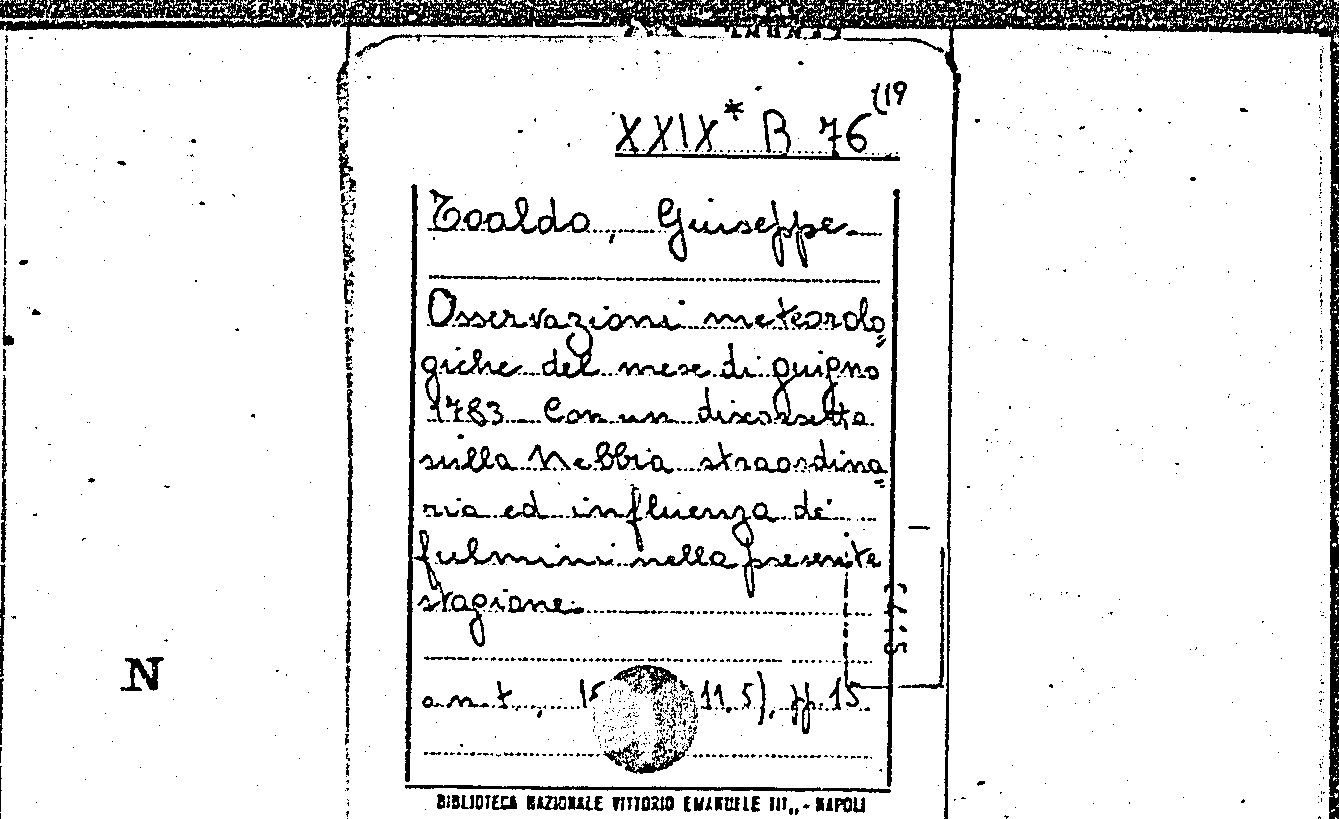 XXIX* B 76 (19
Toaldo, Giuseppe.
Osservazioni meteorolo=
giche del mese di guigno
1783. Con un discorsetto
sulla Nebbia straordina=
ria ed influenza de'
fulmini nella presente
stagione.
a.n.t., 11.5), pp. 15.
N
BIBLIOTECA NAZIONALE VITTORIO EMANUELE III,, - NAPOLI